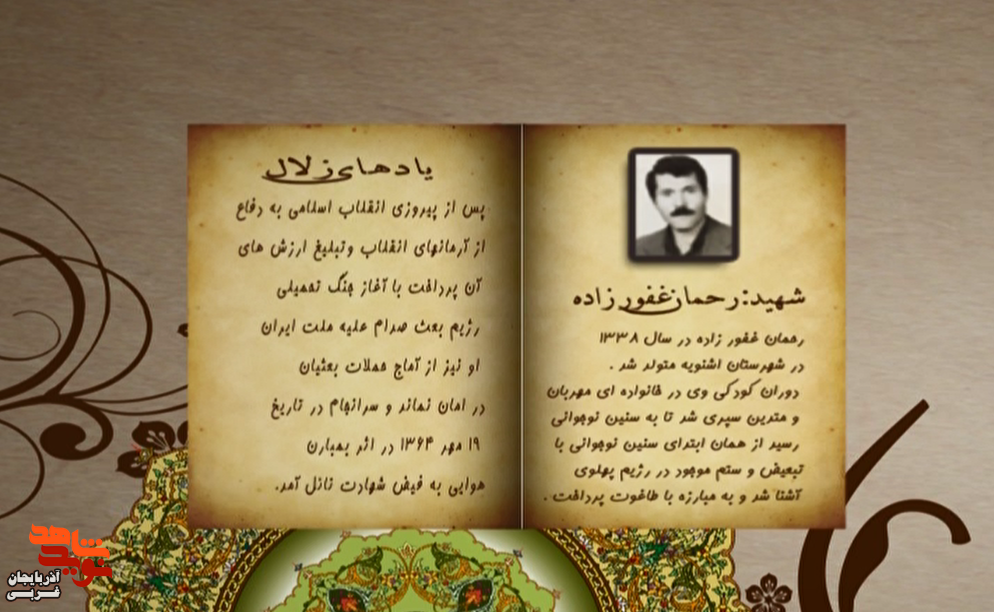 شهید: رحمان غفور زاده
رحمان غفور زاده در سال ۱۳۳۸
در شهرستان اشنویه متولد شد .
دوران کودکی وی در خانواده ای مهربان
و متدین سپری شد تا به سنین نوجوانی
رسید از همان ابتدای سنین نوجوانی با
تبعیض و ستم موجود در رژیم پهلوی
آشنا شد و به مبارزه با طاغوت پرداخت .
یادهای زلال
پس از پیروزی انقلاب اسلامی به دفاع
از آرمانهای انقلاب وتبلیغ ارزش های
آن پرداخت با آغاز جنگ تحمیلی
رژیم بعث صدام علیه ملت ایران
او نیز از آماج حملات بعثیان
در امان نماند و سرانجام در تاریخ
۱۹ مهر ۱۳۶۴ در اثر بمبارن
هوایی به فیض شهادت نائل آمد.
نوید شاهد
آذربایجان
غربی